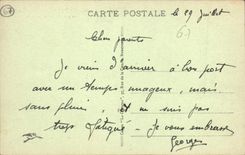 CARTE POSTALE
le 29 Juillet
67
Chers parents
Je viens d'arriver à bon port
avec un temps nuageux, mais
sans pluie, et ne suis pas
trop fatigué - Je vous embrasse
Georges